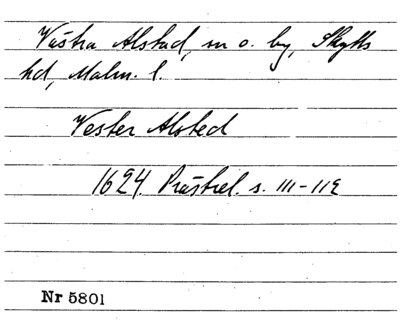 Västra Alstad, sn o. by, Skytts
hd, Malm. l.
Vester Alsted
1624. Prästrel. s. 111-112
Nr 5801